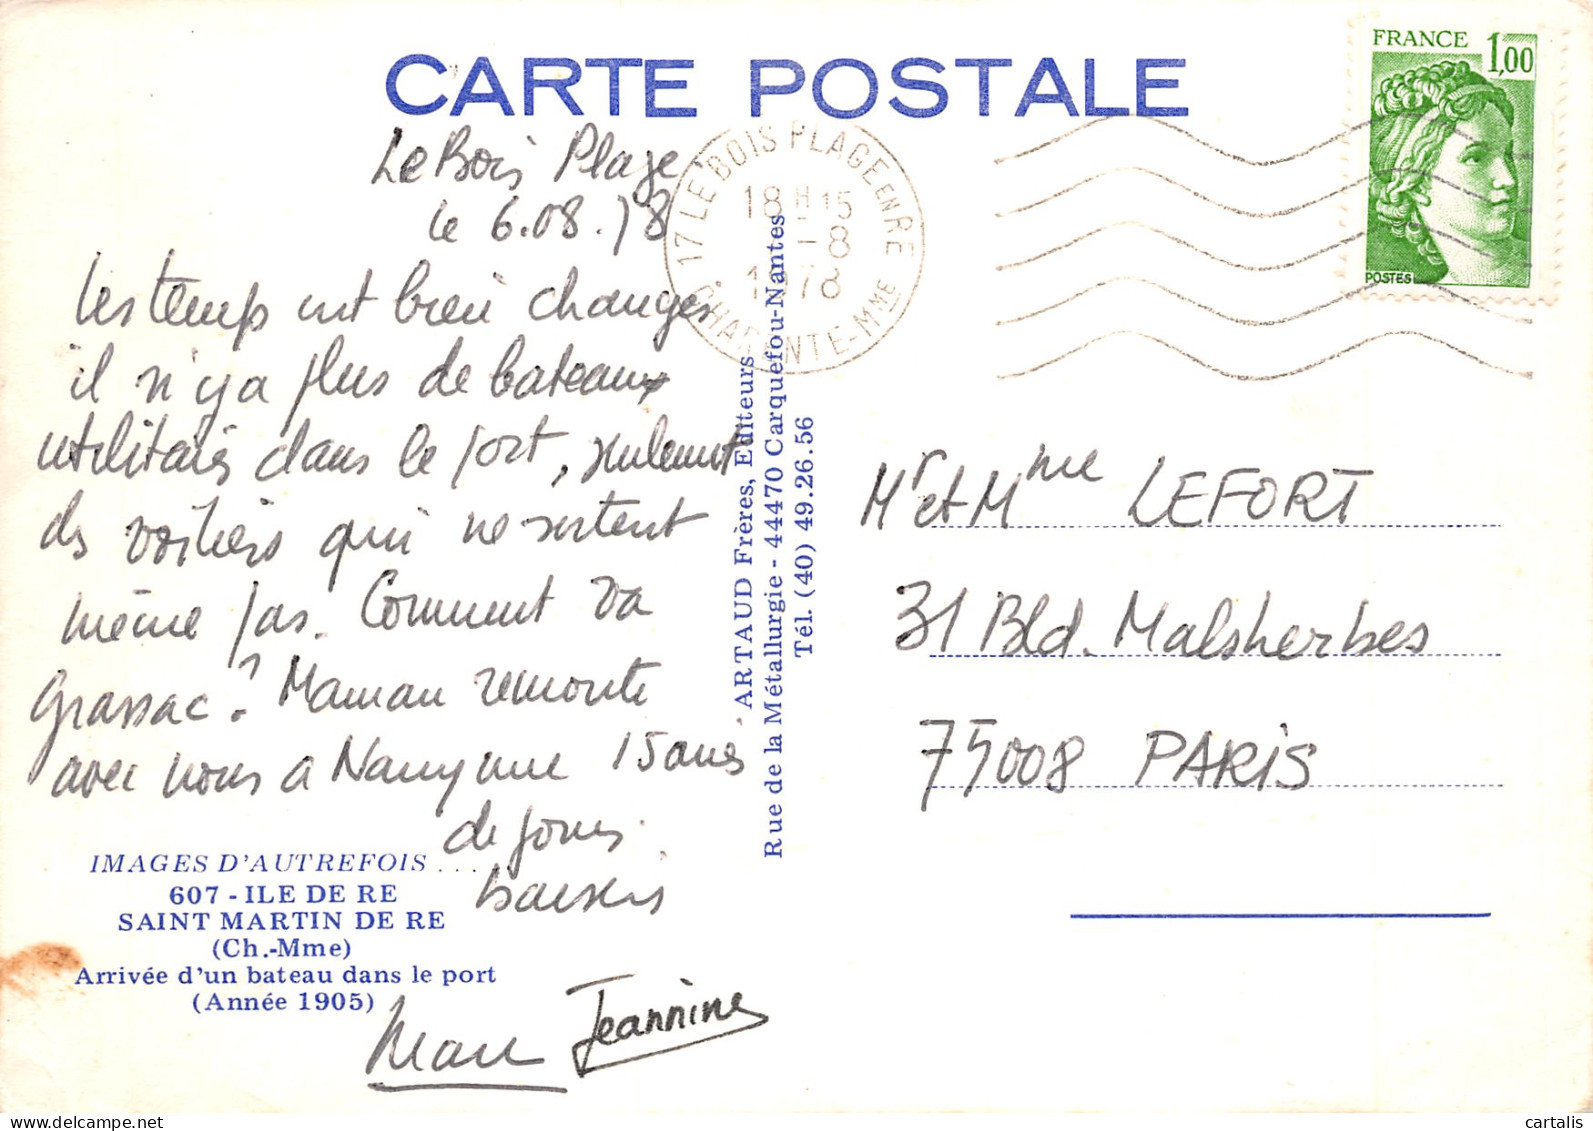 CARTE POSTALE
FRANCE 1,00
POSTES
17 LE BOIS PLAGE EN RE
18 H 15
-8
1978
CHARENTE-MME
Le Bois Plage
le 6.08.78
Les temps ont bien changés
il n'y a plus de bateaux
utilitaires dans le port, seulement
des voiliers qui ne sortent
même pas. Comment va
Grassac? Maman remonte
avec nous a Nancy une 15aine
de jours.
baisers
Marc Jeannine
IMAGES D'AUTREFOIS ...
607 - ILE DE RE
SAINT MARTIN DE RE
(Ch.-Mme)
Arrivée d'un bateau dans le port
(Année 1905)
ARTAUD Frères, Editeurs
Rue de la Métallurgie - 44470 Carquefou-Nantes
Tél. (40) 49.26.56
Mr et Mme LEFORT
31 Bld. Malsherbes
75008 PARIS
cartalis